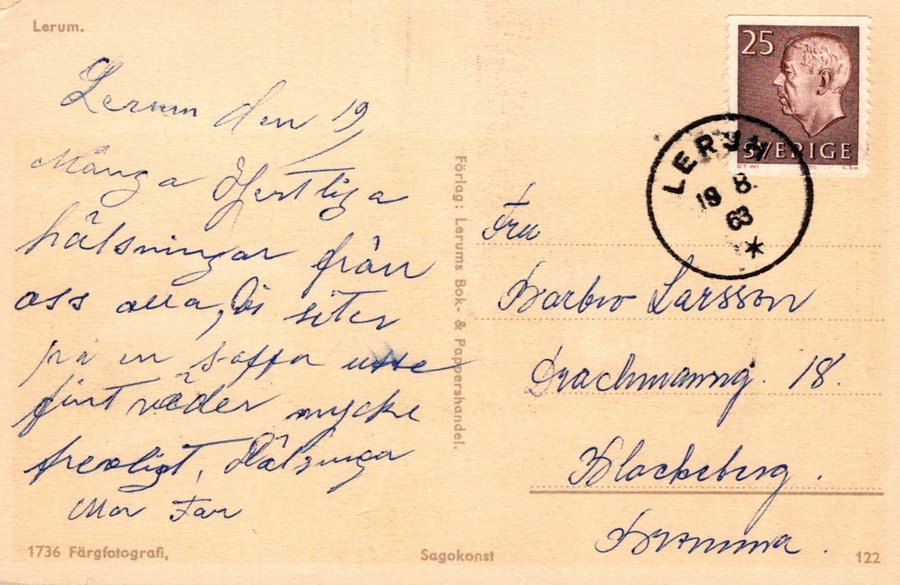 Lerum.
Lerum den 19/
Många Hjertliga
hälsningar från
oss alla, Vi siter
på en soffa ute
fint väder mycke
trevligt, Hälsninga
Mor Far
1736 Färgfotografi,
Förlag: Lerums Bok- & Pappershandel.
Sagokonst
25
SVERIGE
LERUM
19 8.
63
Fru
Barbro Larsson
Drachmanng. 18.
Blackeberg.
Bromma.
122